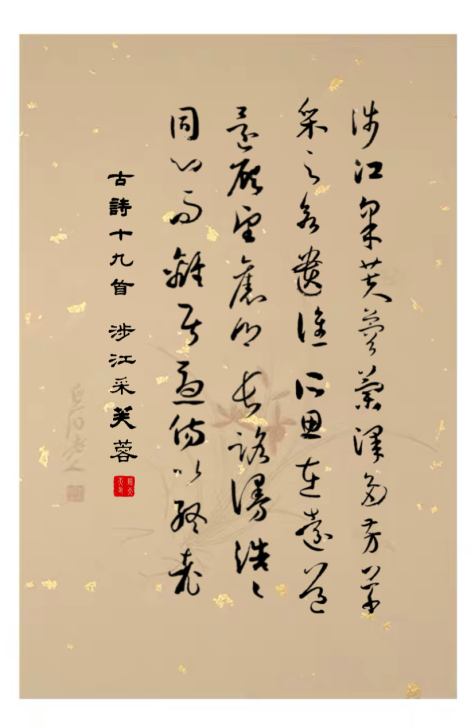 涉江采芙蓉蘭澤多芳草
采之欲遺誰所思在遠道
還顧望舊鄉長路漫浩々
同心而離居憂傷以終老
古詩十九首 涉江采芙蓉
白石老人